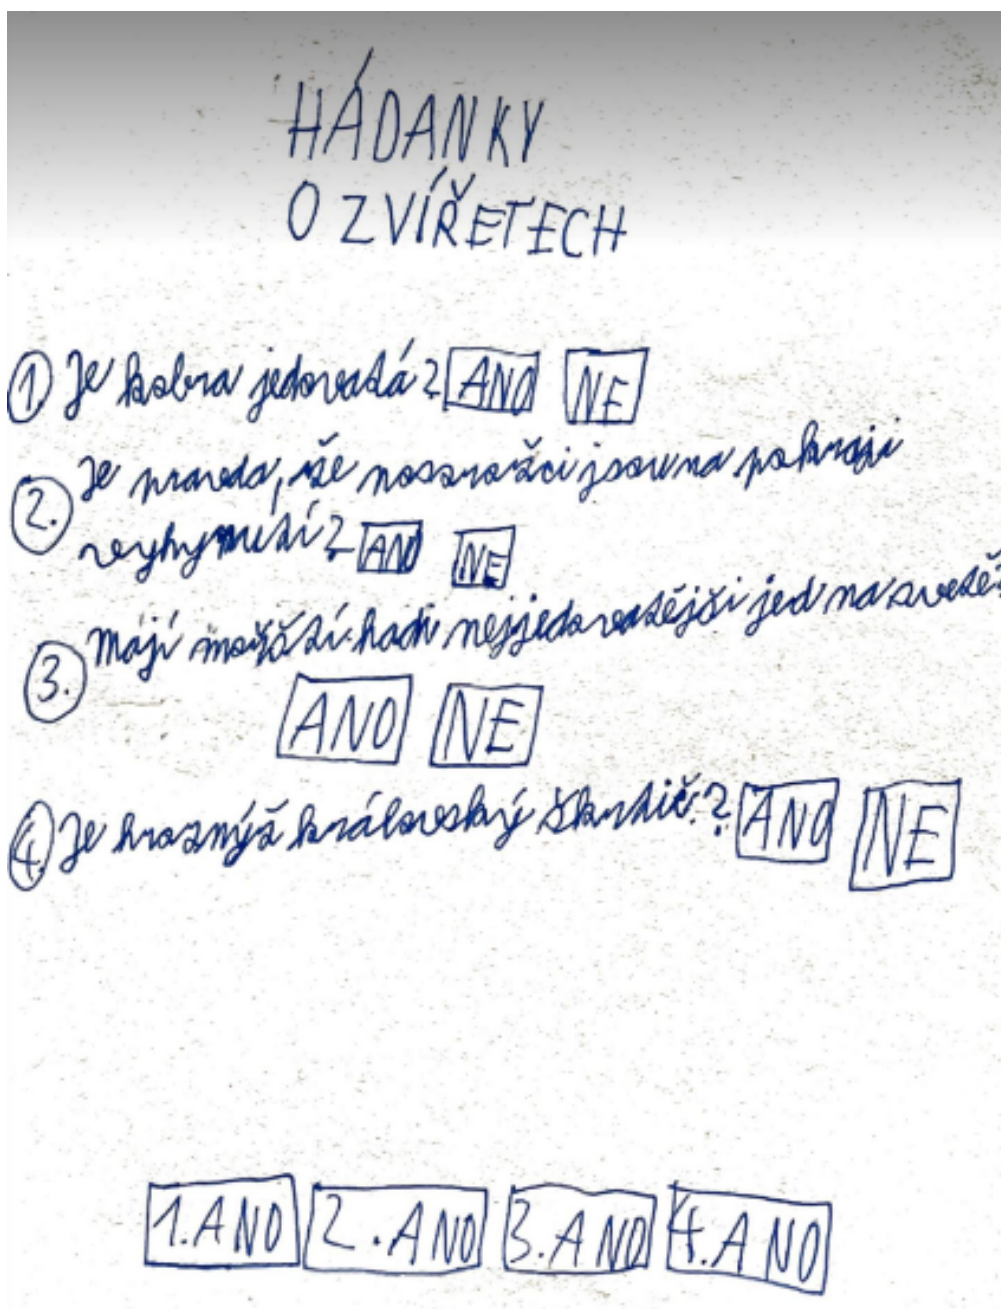 HÁDANKY
O ZVÍŘETECH
1 Je kobra jedovatá? ANO NE
2. Je pravda, že nosorožci jsou na pokraji
vyhynutí? ANO NE
3. Mají mořští hadi nejjedovatější jed na světě?
ANO NE
4. Je hroznýš královský škrtič? ANO NE
1. ANO 2. ANO 3. ANO 4. ANO